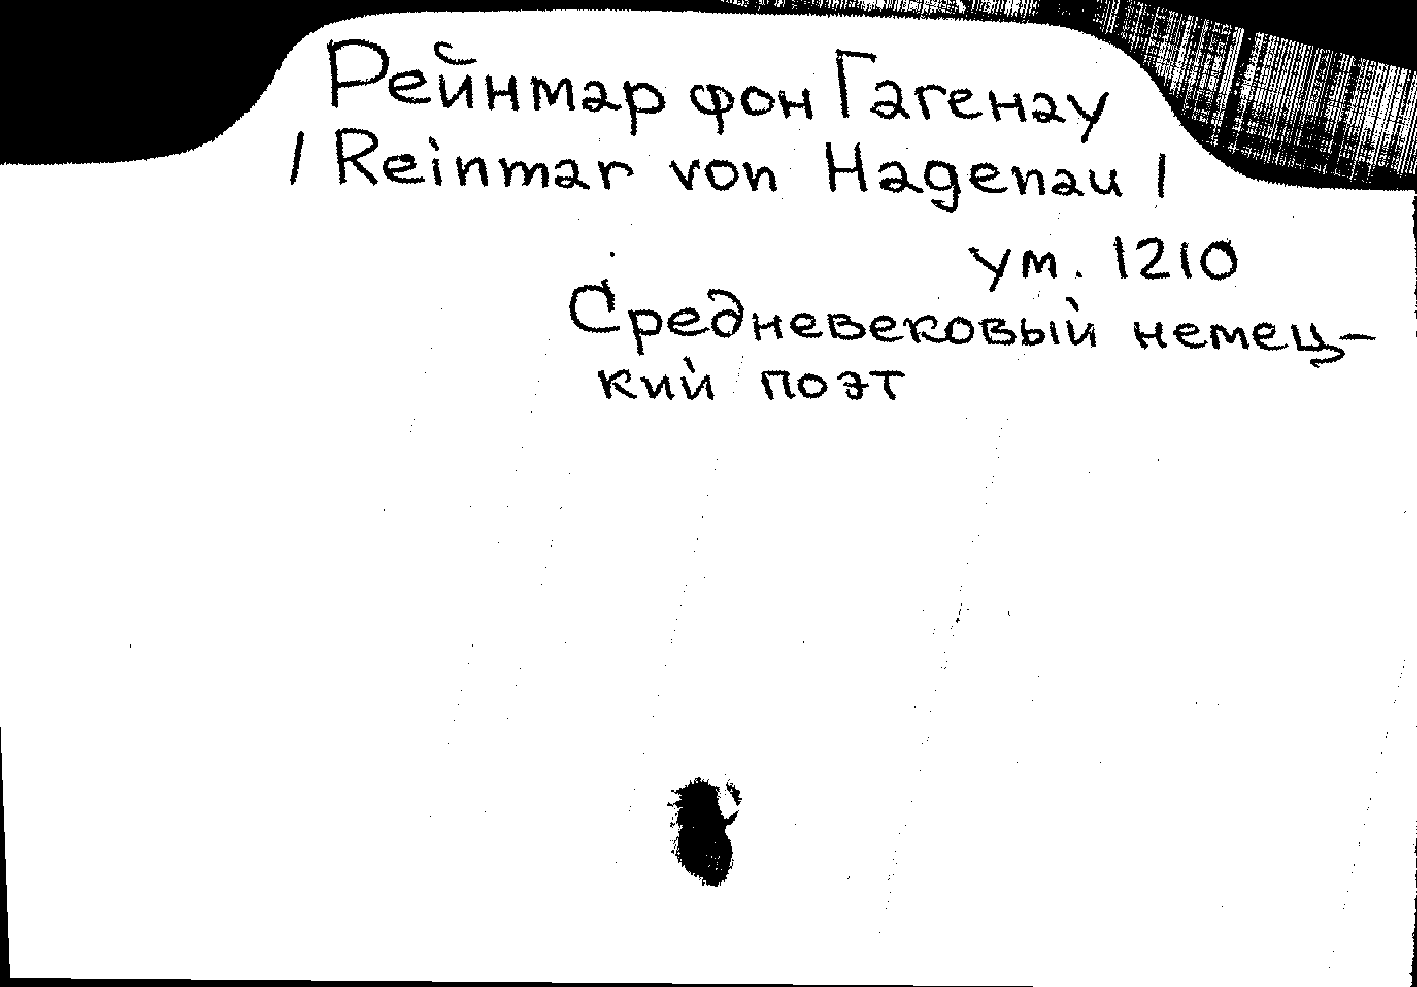 Рейнмар фон Гагенау
/ Reinmar von Hagenau /
ум. 1210
Средневековый немец-
кий поэт